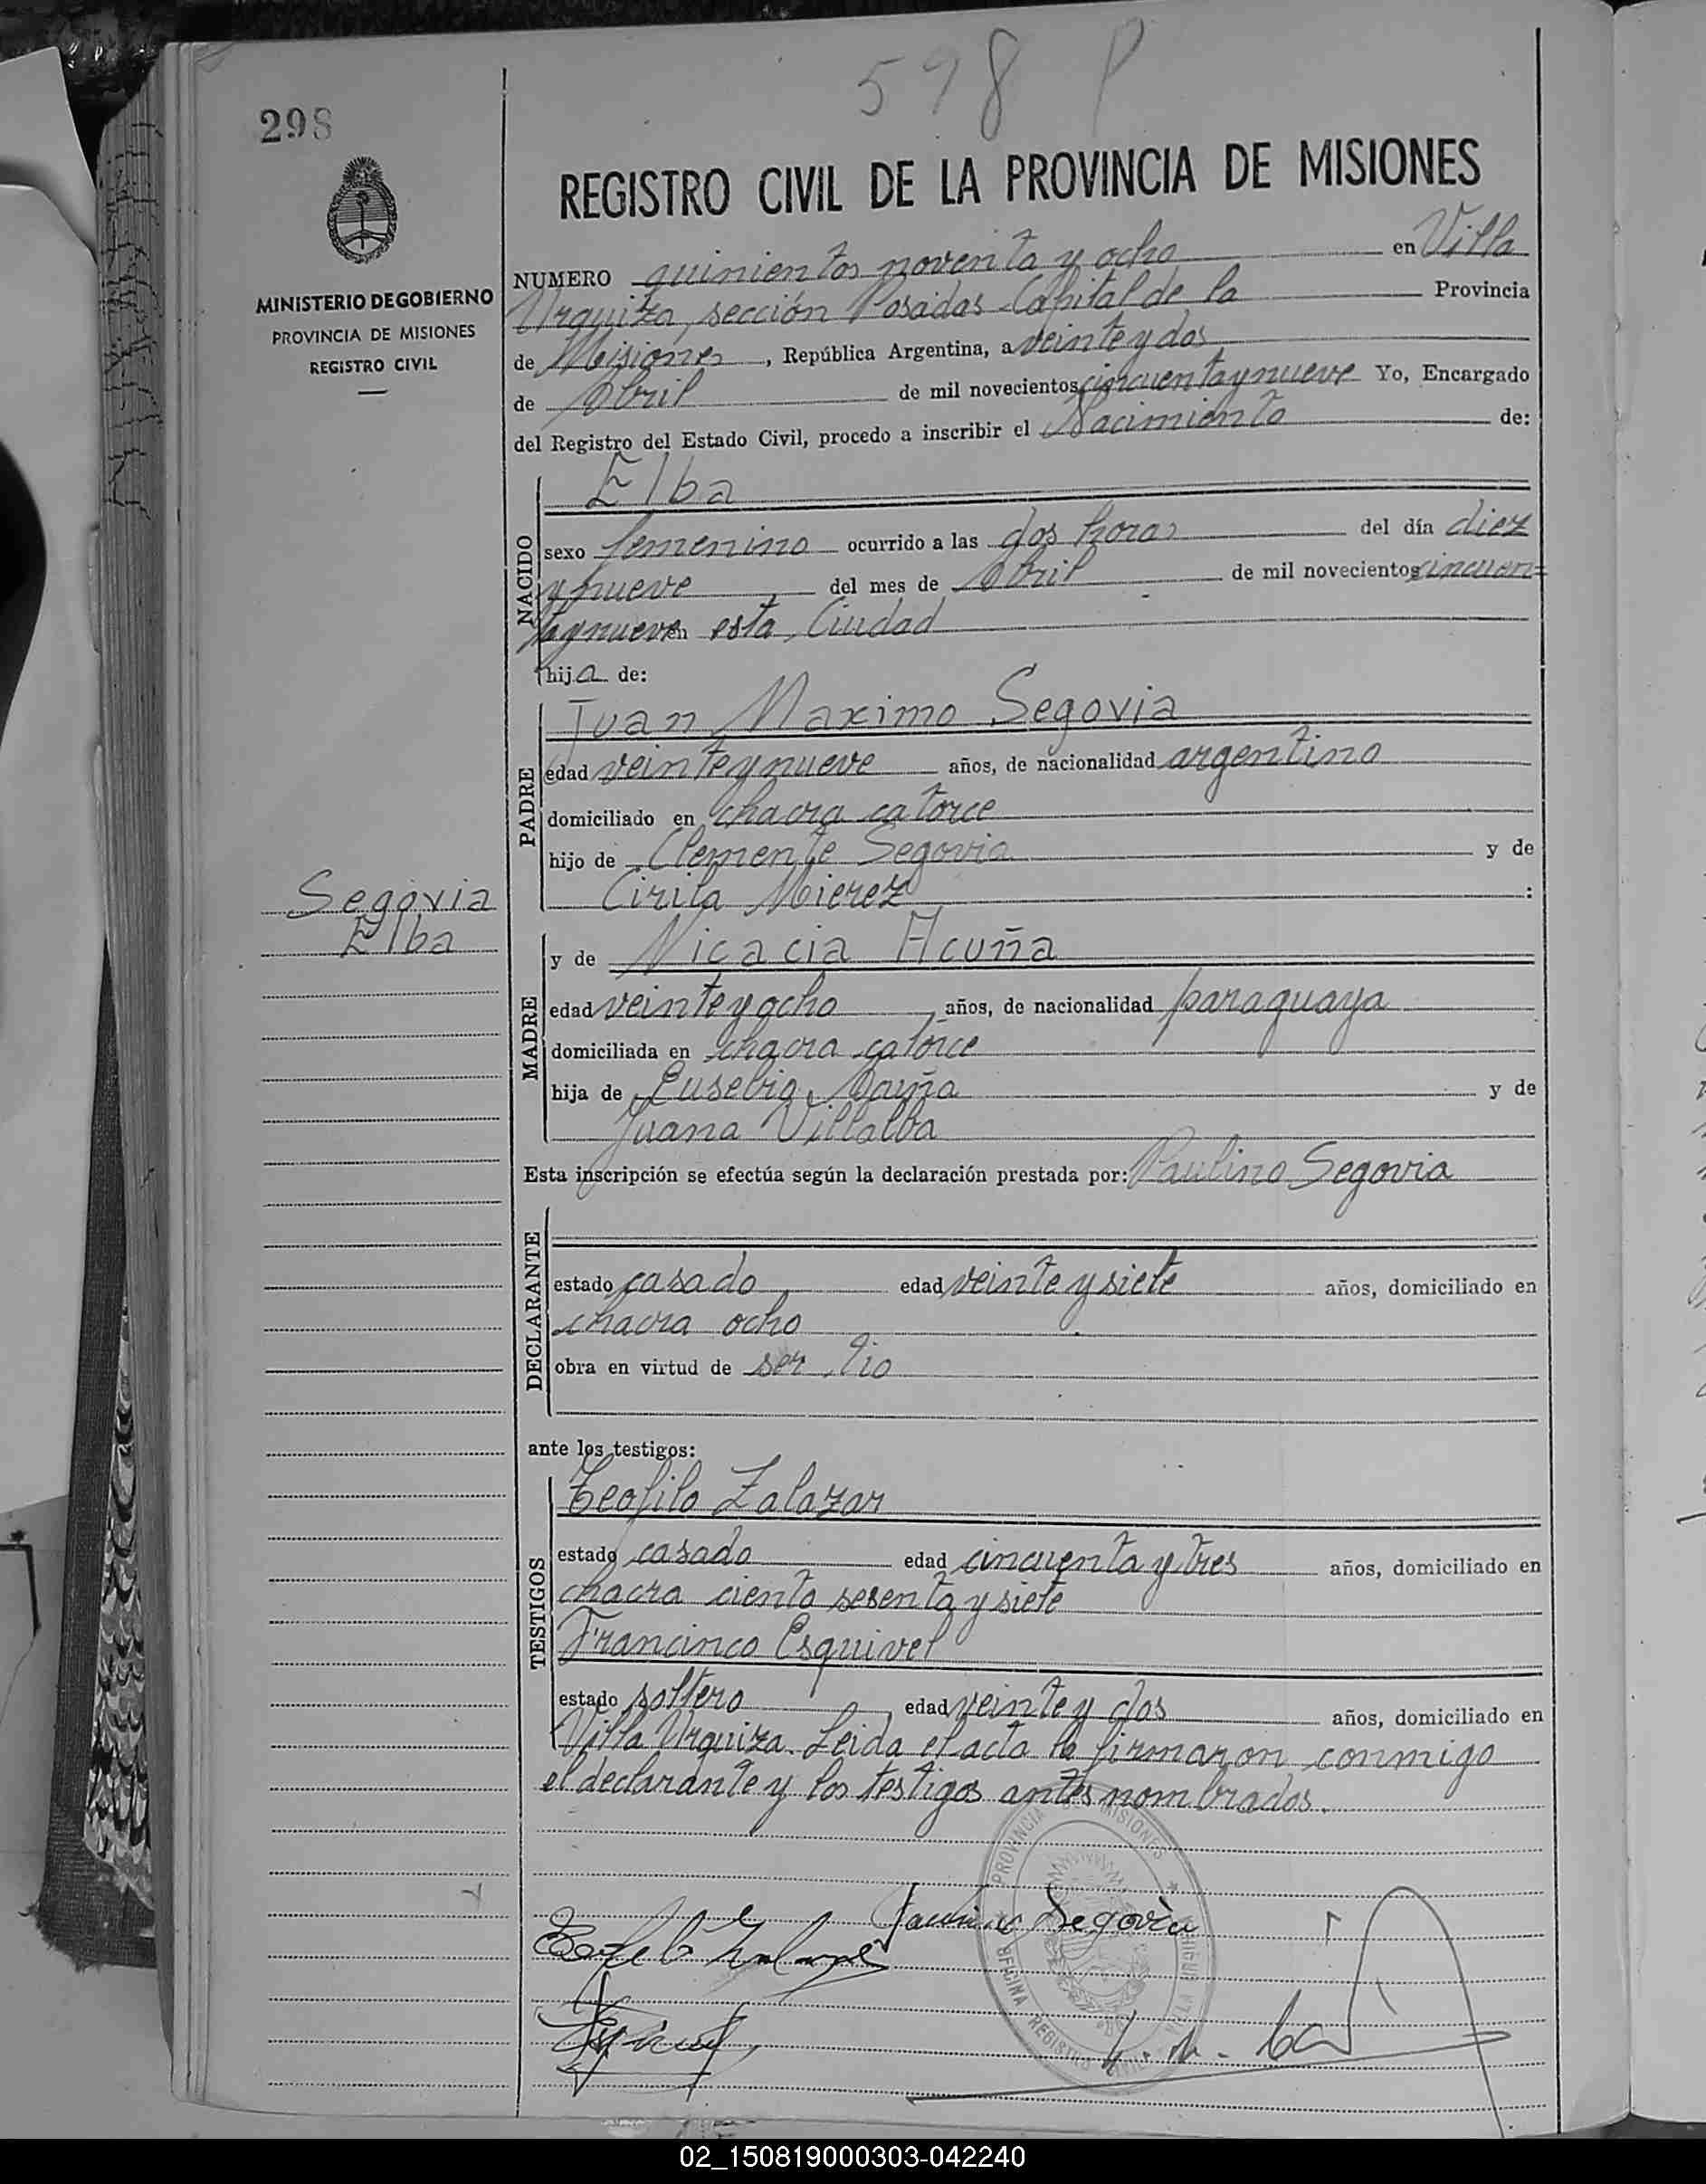 598 P
298
MINISTERIO DE GOBIERNO
PROVINCIA DE MISIONES
REGISTRO CIVIL
REGISTRO CIVIL DE LA PROVINCIA DE MISIONES
NUMERO quinientos noventa y ocho en Villa
Urquiza, sección Posadas Capital de la Provincia
de Misiones, República Argentina, a veinte y dos
de Abril de mil novecientos cincuenta y nueve Yo, Encargado
del Registro del Estado Civil, procedo a inscribir el Nacimiento de:
NACIDO
Elba
sexo femenino ocurrido a las dos horas del día diez
y nueve del mes de Abril de mil novecientos cincuen=
ta y nueve en esta Ciudad
hija de:
PADRE
Juan Maximo Segovia
edad veinte y nueve años, de nacionalidad argentino
domiciliado en chacra catorce
hijo de Clemente Segovia y de
Cirila Mierez :
Segovia
Elba
MADRE
y de Nicacia Acuña
edad veinte y ocho, años, de nacionalidad paraguaya
domiciliada en chacra catorce
hija de Eusebia Acuña y de
Juana Villalba
Esta inscripción se efectúa según la declaración prestada por: Paulino Segovia
DECLARANTE
estado casado, edad veinte y siete años, domiciliado en
chacra ocho
obra en virtud de ser tio
ante los testigos:
TESTIGOS
Teofilo Zalazar
estado casado edad cincuenta y tres años, domiciliado en
chacra ciento sesenta y siete
Francinco Esquivel
estado soltero, edad veinte y dos años, domiciliado en
Villa Urquiza. Leida el acta la firmaron conmigo
el declarante y los testigos antes nombrados.
PROVINCIA DE MISIONES
OFICINA REGISTRO CIVIL VILLA URQUIZA
Paulino Segovia
02_150819000303-042240